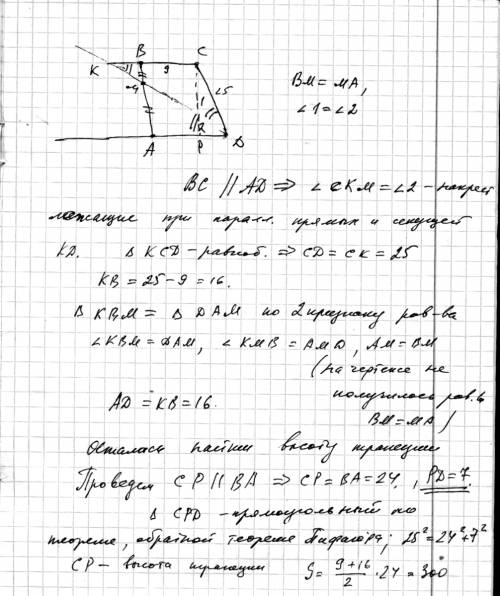 B C
K 9
M 25
1
2
A P D
BM = MA,
∠1 = ∠2
BC || AD ⇒ ∠CKM = ∠2 – накрест
лежащие при паралл. прямых и секущей
KD. Δ KCD – равноб. ⇒ CD = CK = 25
KB = 25 – 9 = 16.
Δ KBM = Δ DAM по 2 признаку рав-ва
∠KBM = DAM, ∠KMB = AMD, AM = BM
(на чертеже не
получилось рав.
BM = MA)
AD = KB = 16.
Осталось найти высоту трапеции
Проведем CP || BA ⇒ CP = BA = 24, PD = 7.
Δ CPD – прямоугольный по
теореме, обратной теореме Пифагора; 25² = 24² + 7²
CP – высота трапеции S = 9+16/2 · 24 = 300